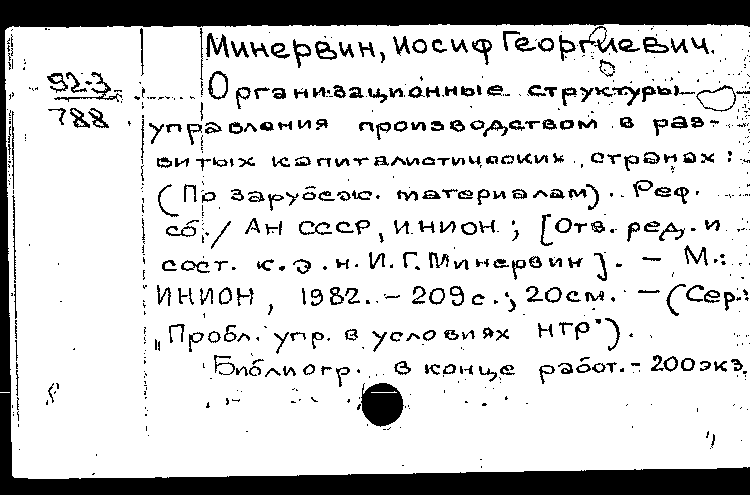 Минервин, Иосиф Георгиевич.
92-3
788
Организационные структуры
управления производством в раз-
витых капиталистических странах:
(По зарубеж. материалам). Реф.
сб./ АН СССР, ИНИОН; [Отв. ред. и
сост. к.э.н. И.Г. Минервин]. — М.:
ИНИОН, 1982. - 209с.; 20см. — (Сер.:
„Пробл. упр. в условиях НТР").
Библиогр. в конце работ. - 200экз.